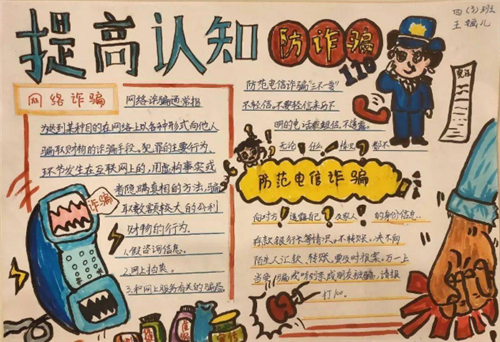 提高认知
防诈骗
110
四(3)班
网络诈骗
网络诈骗通常指
为达到某种目的在网络上以各种形式向他人
骗取财物的诈骗手段。犯罪的主要行为、
环节发生在互联网上的，用虚构事实或
者隐瞒真相的方法，骗
取数额较大的公私
财物的行为
诈骗
1.假咨询信息。
2.网上拍卖。
3.和网上服务有关的骗局
防范电信诈骗"三不一要"
不轻信：不要轻信来历不
明的电话和短信，不透露。
无论 什么 情况 都不
防范电信诈骗
向对方透露自己及家人的身份信息、
存款银行卡等情况。不转账，决不向
陌生人汇款、转账，要及时报案，万一上
当受骗或听到亲戚朋友被骗，请报
打110。